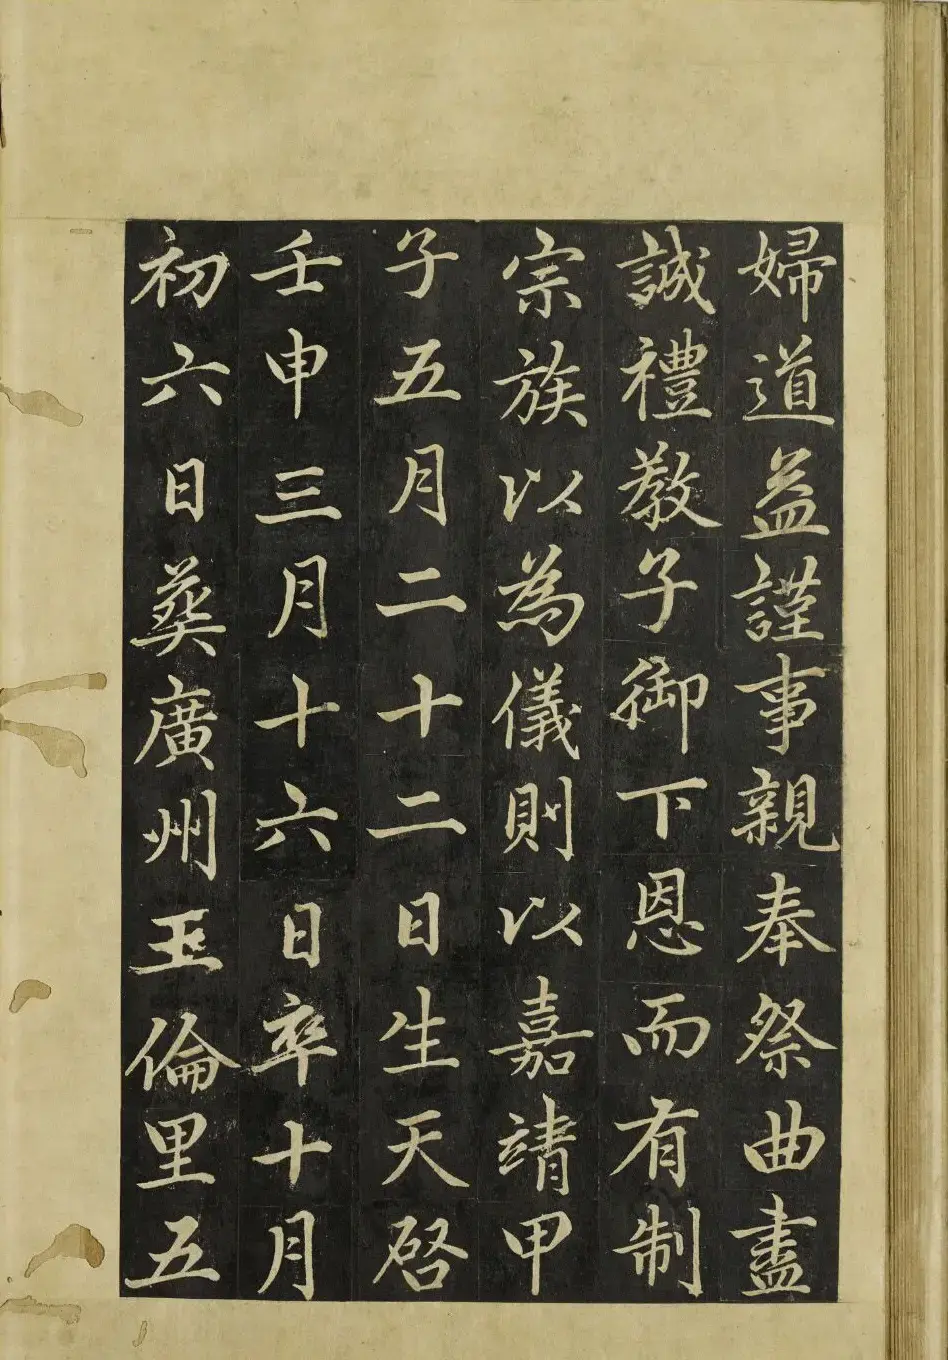 婦道益謹事親奉祭曲盡
誠禮教子御下恩而有制
宗族以為儀則以嘉靖甲
子五月二十二日生天啓
壬申三月十六日卒十月
初六日葬廣州五倫里五